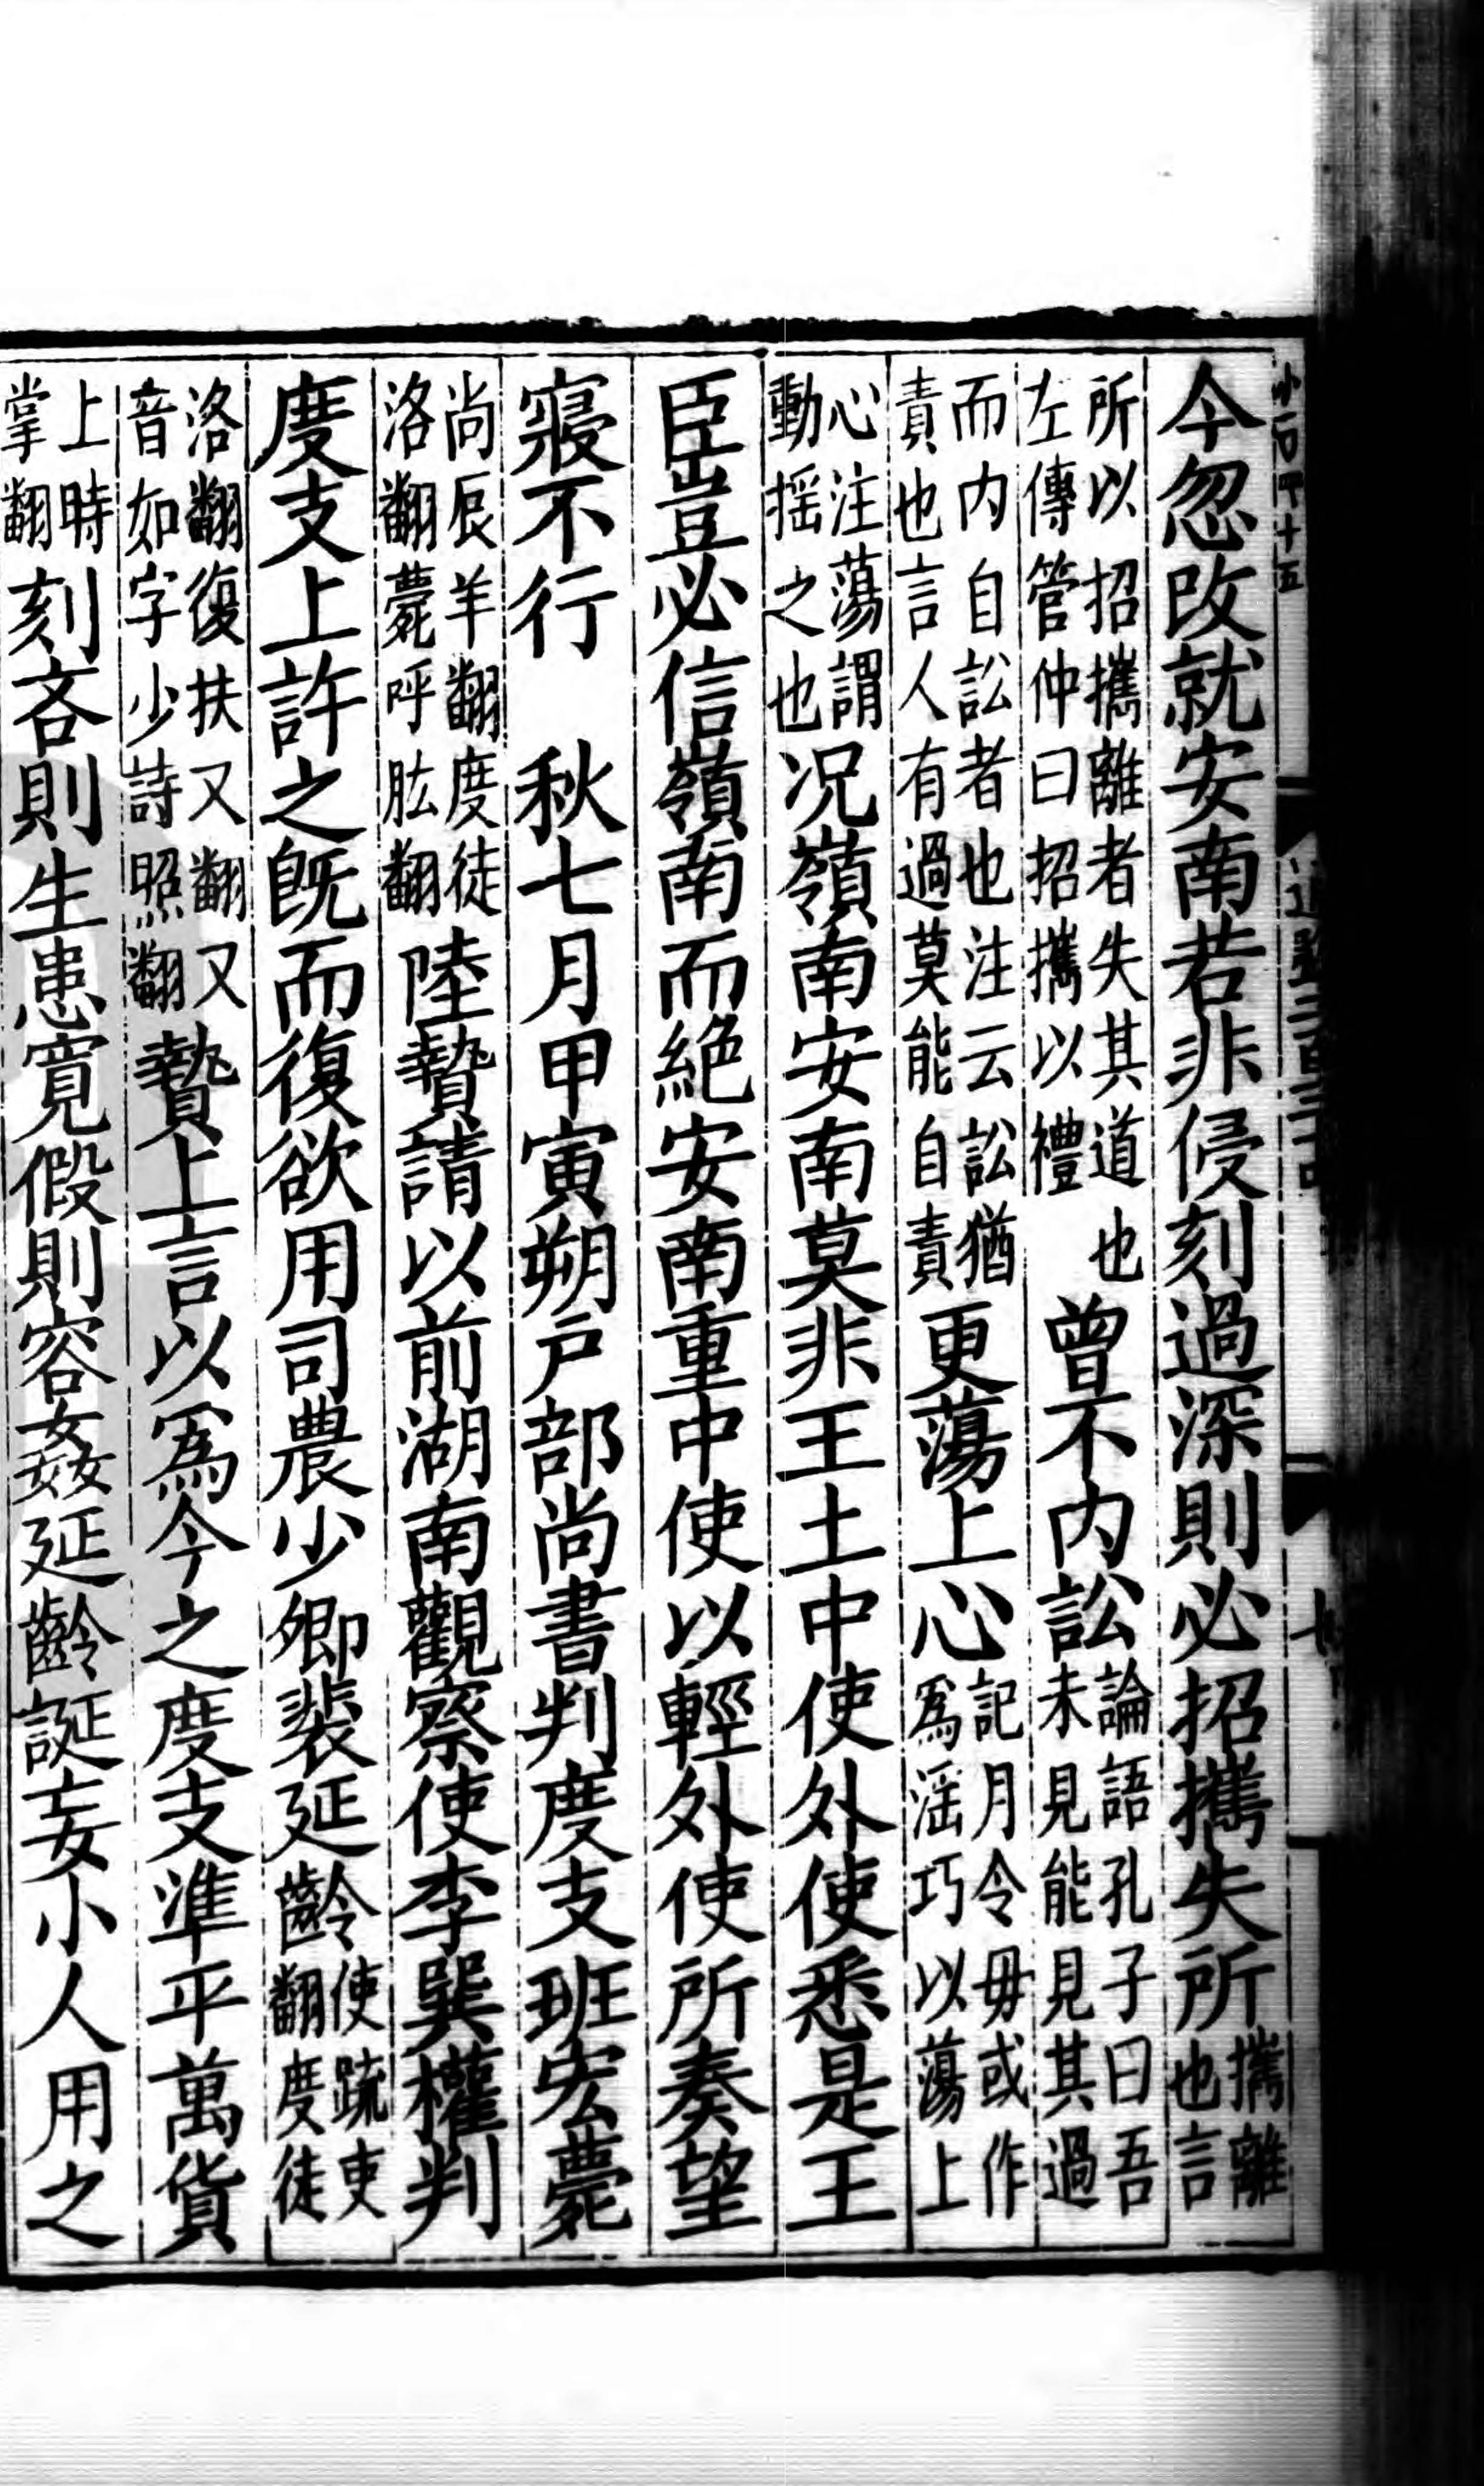 今忽改就安南若非侵刻過深則必招攜失所攜離也言
所以招攜離者失其道也左傳管仲曰招攜以禮曾不内訟論語孔子曰吾未見能見其過
而内自訟者也注云訟猶責也言人有過莫能自責更蕩上心記月令毋或作爲滛巧以蕩上
心注蕩謂動揺之也况嶺南安南莫非王土中使外使悉是王
臣豈必信嶺南而絶安南重中使以輕外使所奏望
寢不行　秋七月甲寅朔戸部尚書判度支班宏薨
尚辰羊翻度徒洛翻薨呼肱翻陸贄請以前湖南觀察使李巽權判
度支上許之旣而復欲用司農少卿裴延齡使疏吏翻度徒
洛翻復扶又翻又音如字少詩照翻贄上言以爲今之度支準平萬貨
上時掌翻刻吝則生患寛假則容姦延齡誕妄小人用之